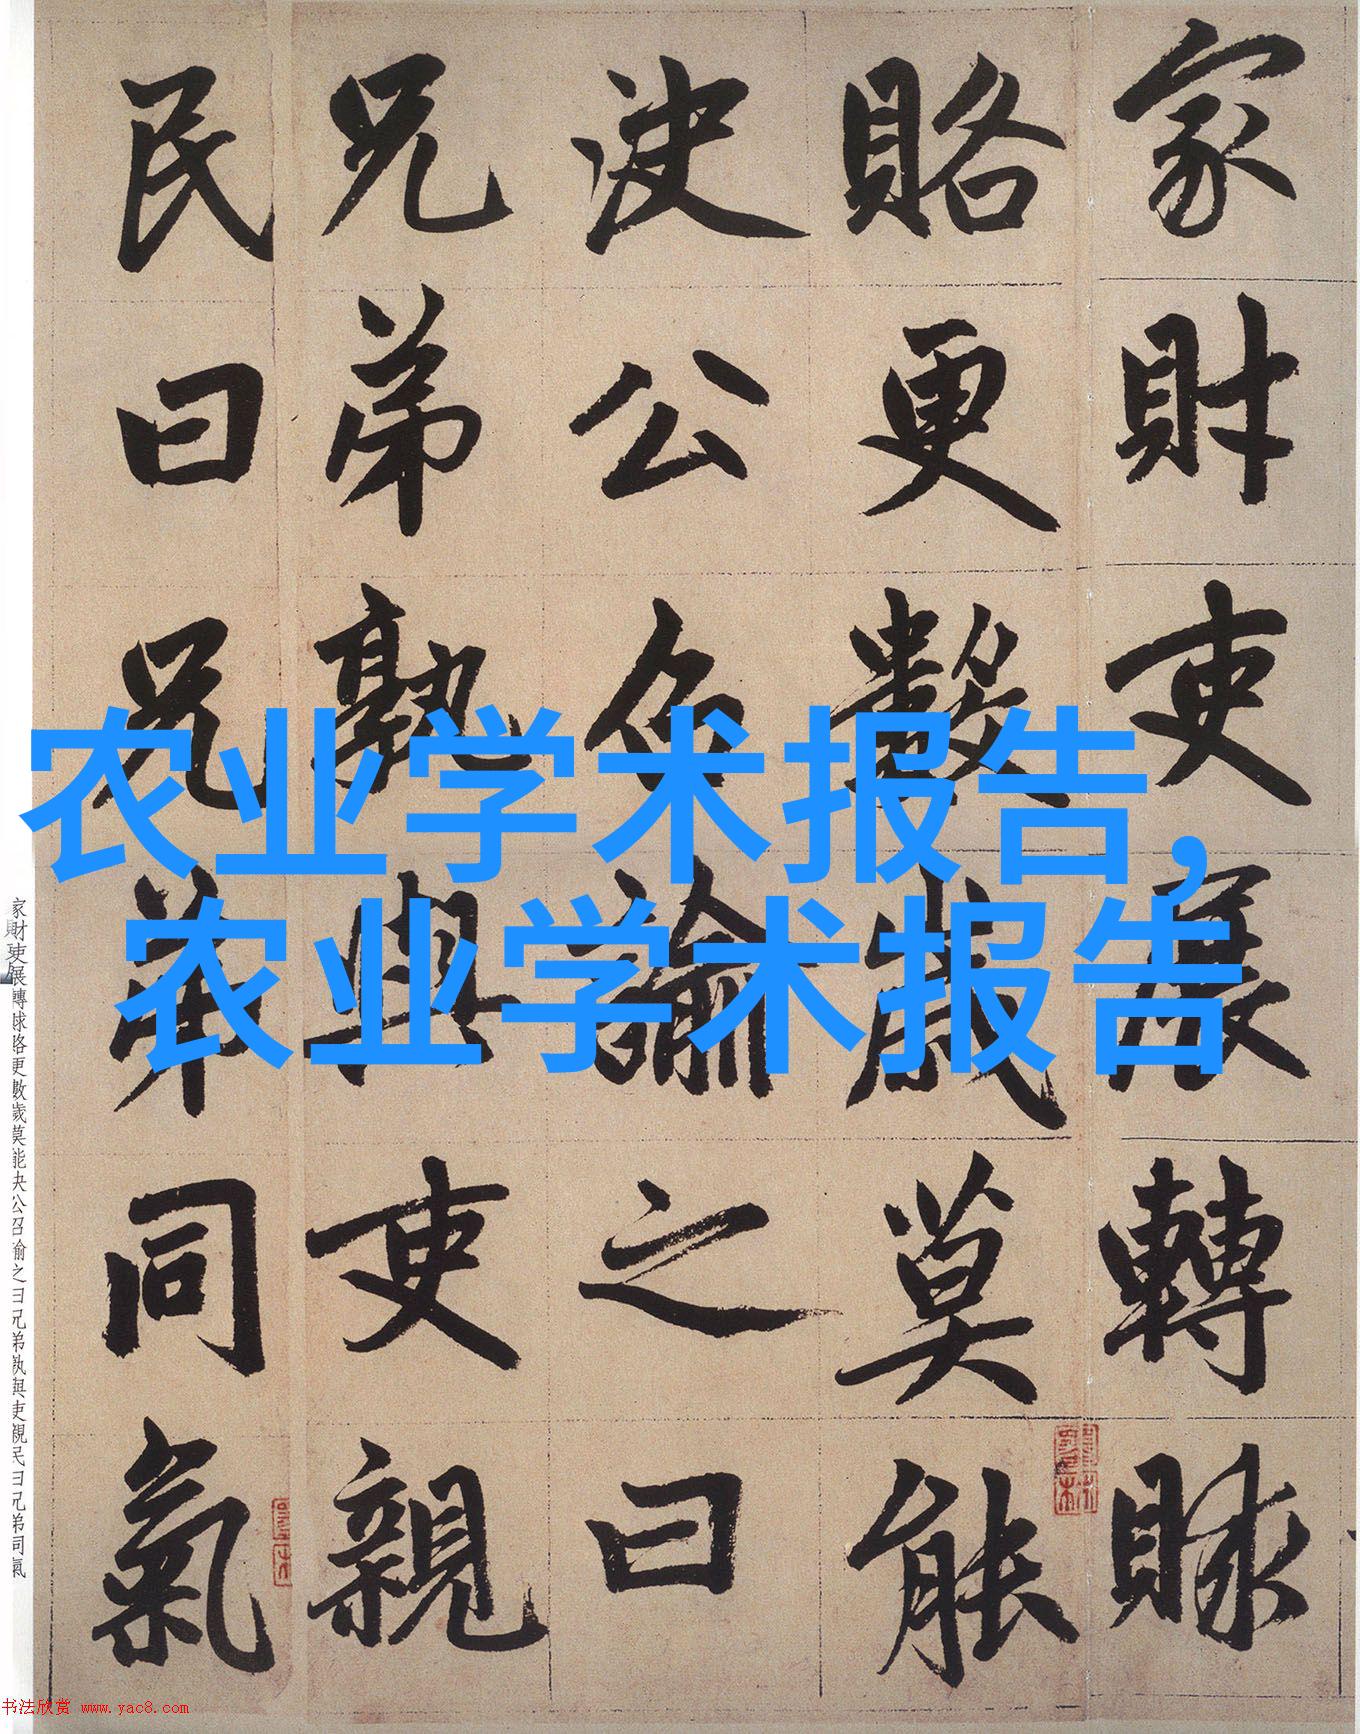 家財吏展轉賕
賂更數歲莫能
決公召諭之曰
兄弟孰與吏親
民曰兄弟同氣
农业学术报告,
农业学术报告
家財吏展轉賕賂更數歲莫能決公召諭之曰兄弟孰與吏親民曰兄弟同氣
书法欣赏 www.yac8.com